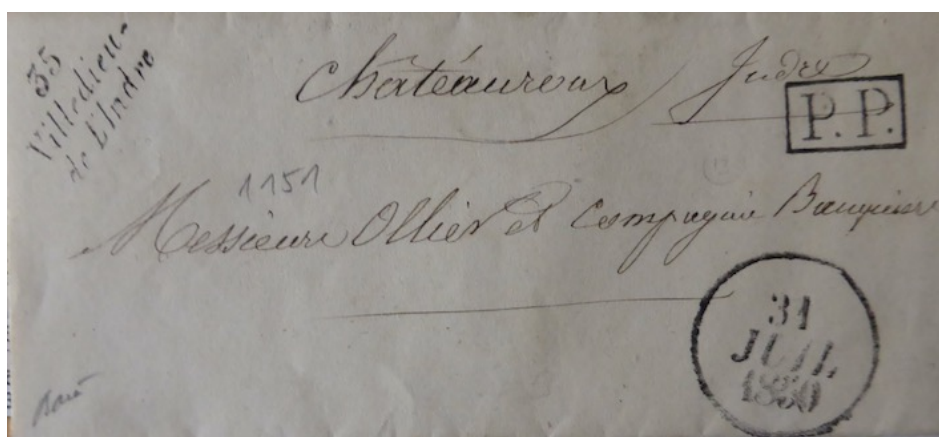 35
Villedieu-
de L'Indre
Châteauroux Indre
P.P.
1151
Messieurs Ollier et Compagnie Banquiers
31
JUIL.
1850